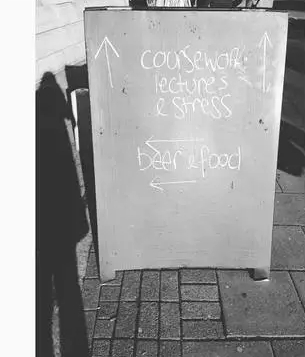 coursework
lectures
& stress
beer & food